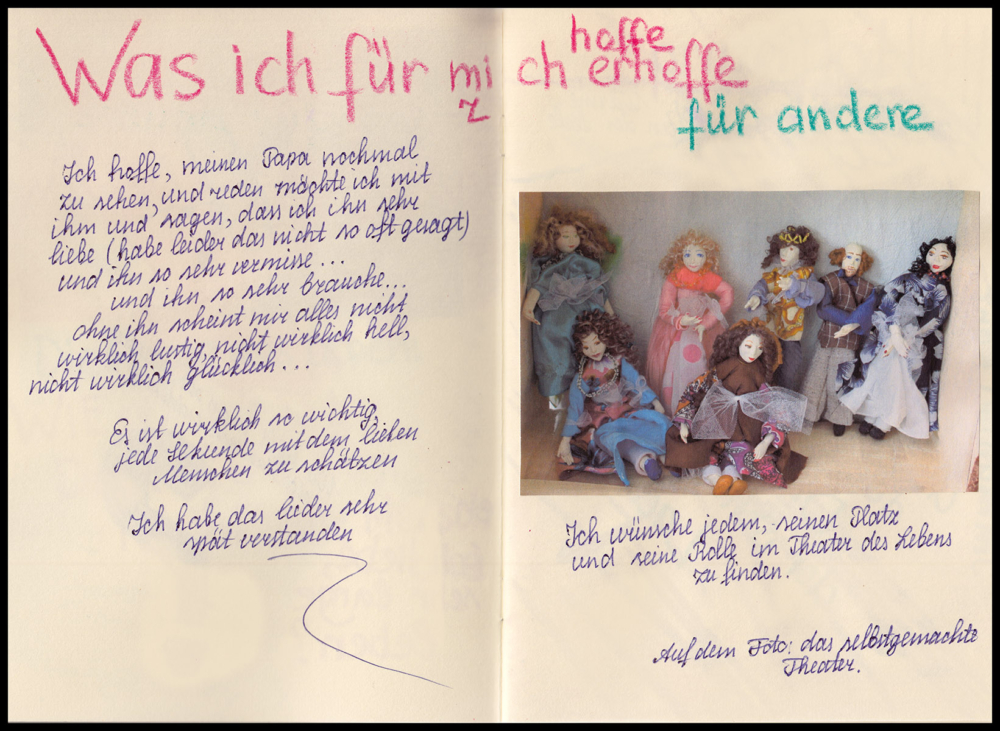 Was ich für mich erhoffe
hoffe
z
für andere
Ich hoffe, meinen Papa nochmal
zu sehen, und reden möchte ich mit
ihm und sagen, dass ich ihn sehr
liebe (habe leider das nicht so oft gesagt)
und ihn so sehr vermisse...
und ihn so sehr brauche...
Ohne ihn scheint mir alles nicht
wirklich lustig, nicht wirklich hell,
nicht wirklich glücklich...
Es ist wirklich so wichtig,
jede Sekunde mit dem lieben
Menschen zu schätzen
Ich habe das lieder sehr
spät verstanden
Ich wünsche jedem, seinen Platz
und seine Rolle im Theater des Lebens
zu finden.
Auf dem Foto: das selbstgemachte
Theater.